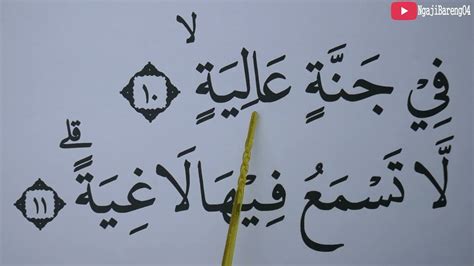 NgajiBareng04
فِيْ جَنَّةٍ عَالِيَةٍ ۙ ١٠
لَّا تَسْمَعُ فِيْهَا لَاغِيَةً ۗ ١١